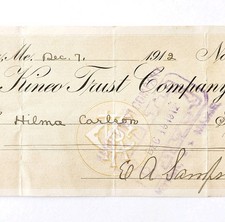 Me. Dec. 7, 1912 No
Kineo Trust Company
Hilma Carlson
E A Samps